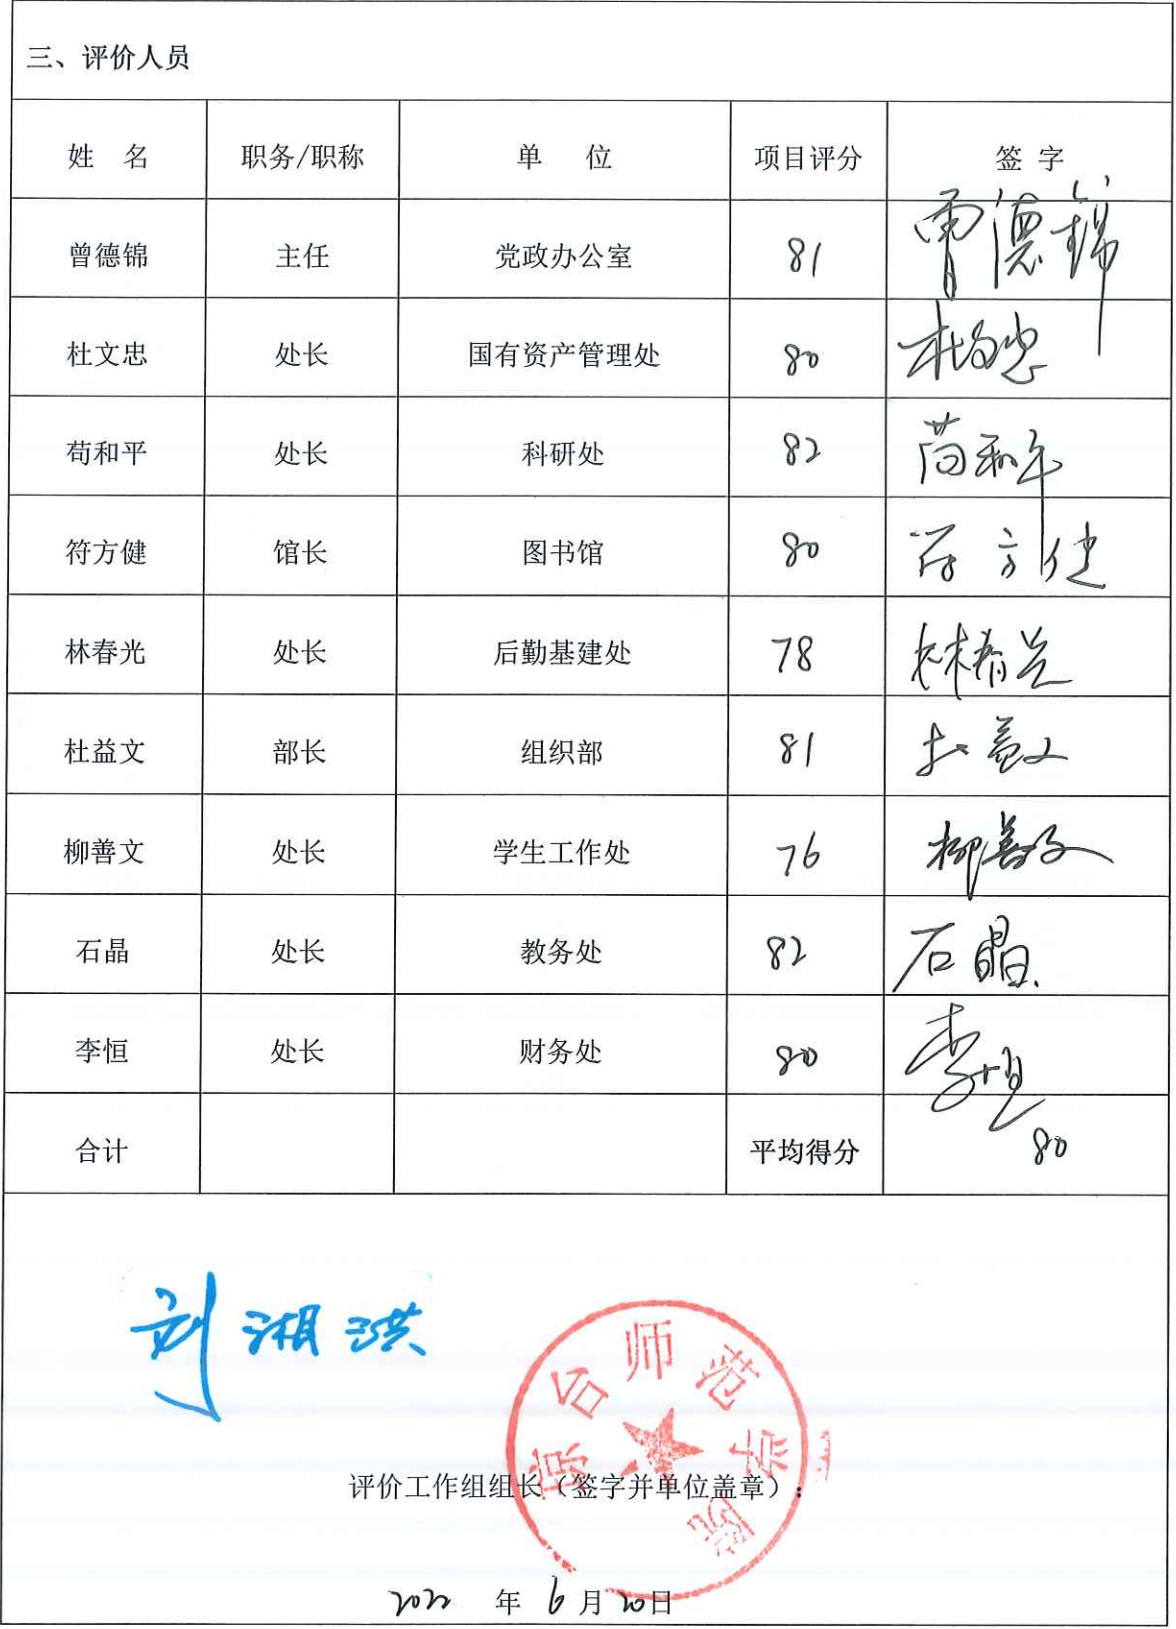 三、评价人员
姓 名 职务/职称 单 位 项目评分 签 字
曾德锦 主任 党政办公室 81 曾德锦
杜文忠 处长 国有资产管理处 80 杜文忠
苟和平 处长 科研处 82 苟和平
符方健 馆长 图书馆 80 符方健
林春光 处长 后勤基建处 78 林春光
杜益文 部长 组织部 81 杜益文
柳善文 处长 学生工作处 76 柳善文
石晶 处长 教务处 82 石晶
李恒 处长 财务处 80 李恒
合计 平均得分 80
刘湘洪
琼台师范学院
评价工作组组长（签字并单位盖章）：
2022 年 6 月 20日